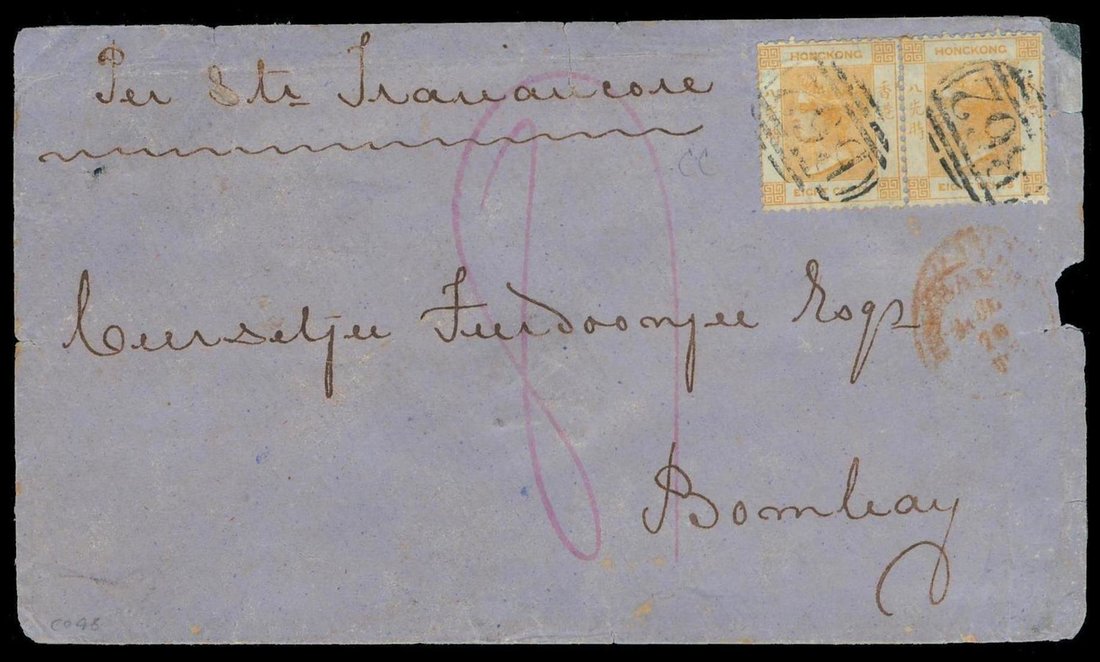 Per Str Travancore
HONGKONG HONGKONG
香港 八先時
EIGHT C EIG S
B62
CC
Cursetjee Furdoonjee Esqr
Bombay
CO98